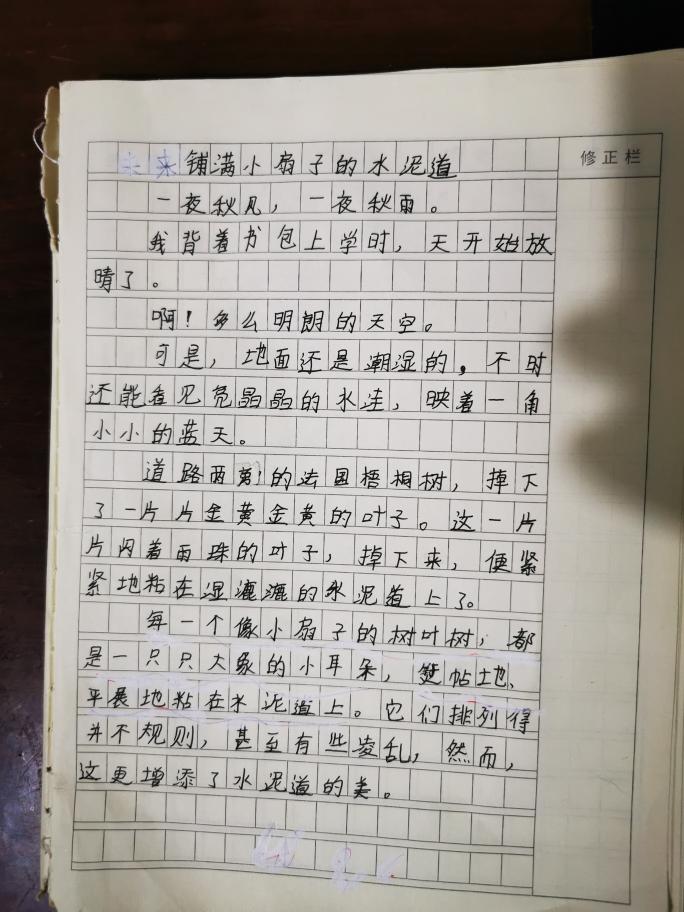 铺满小扇子的水泥道
修正栏
一夜秋风，一夜秋雨。
我背着书包上学时，天开始放
晴了。
啊！多么明朗的天空。
可是，地面还是潮湿的，不时
还能看见亮晶晶的水洼，映着一角
小小的蓝天。
道路两旁的法国梧桐树，掉下
了一片片金黄金黄的叶子。这一片
片闪着雨珠的叶子，掉下来，便紧
紧地粘在湿漉漉的水泥道上了。
每一个像小扇子的树叶树，都
是一只只大象的小耳朵，帖地、
平展地粘在水泥道上。它们排列得
并不规则，甚至有些凌乱，然而，
这更增添了水泥道的美。